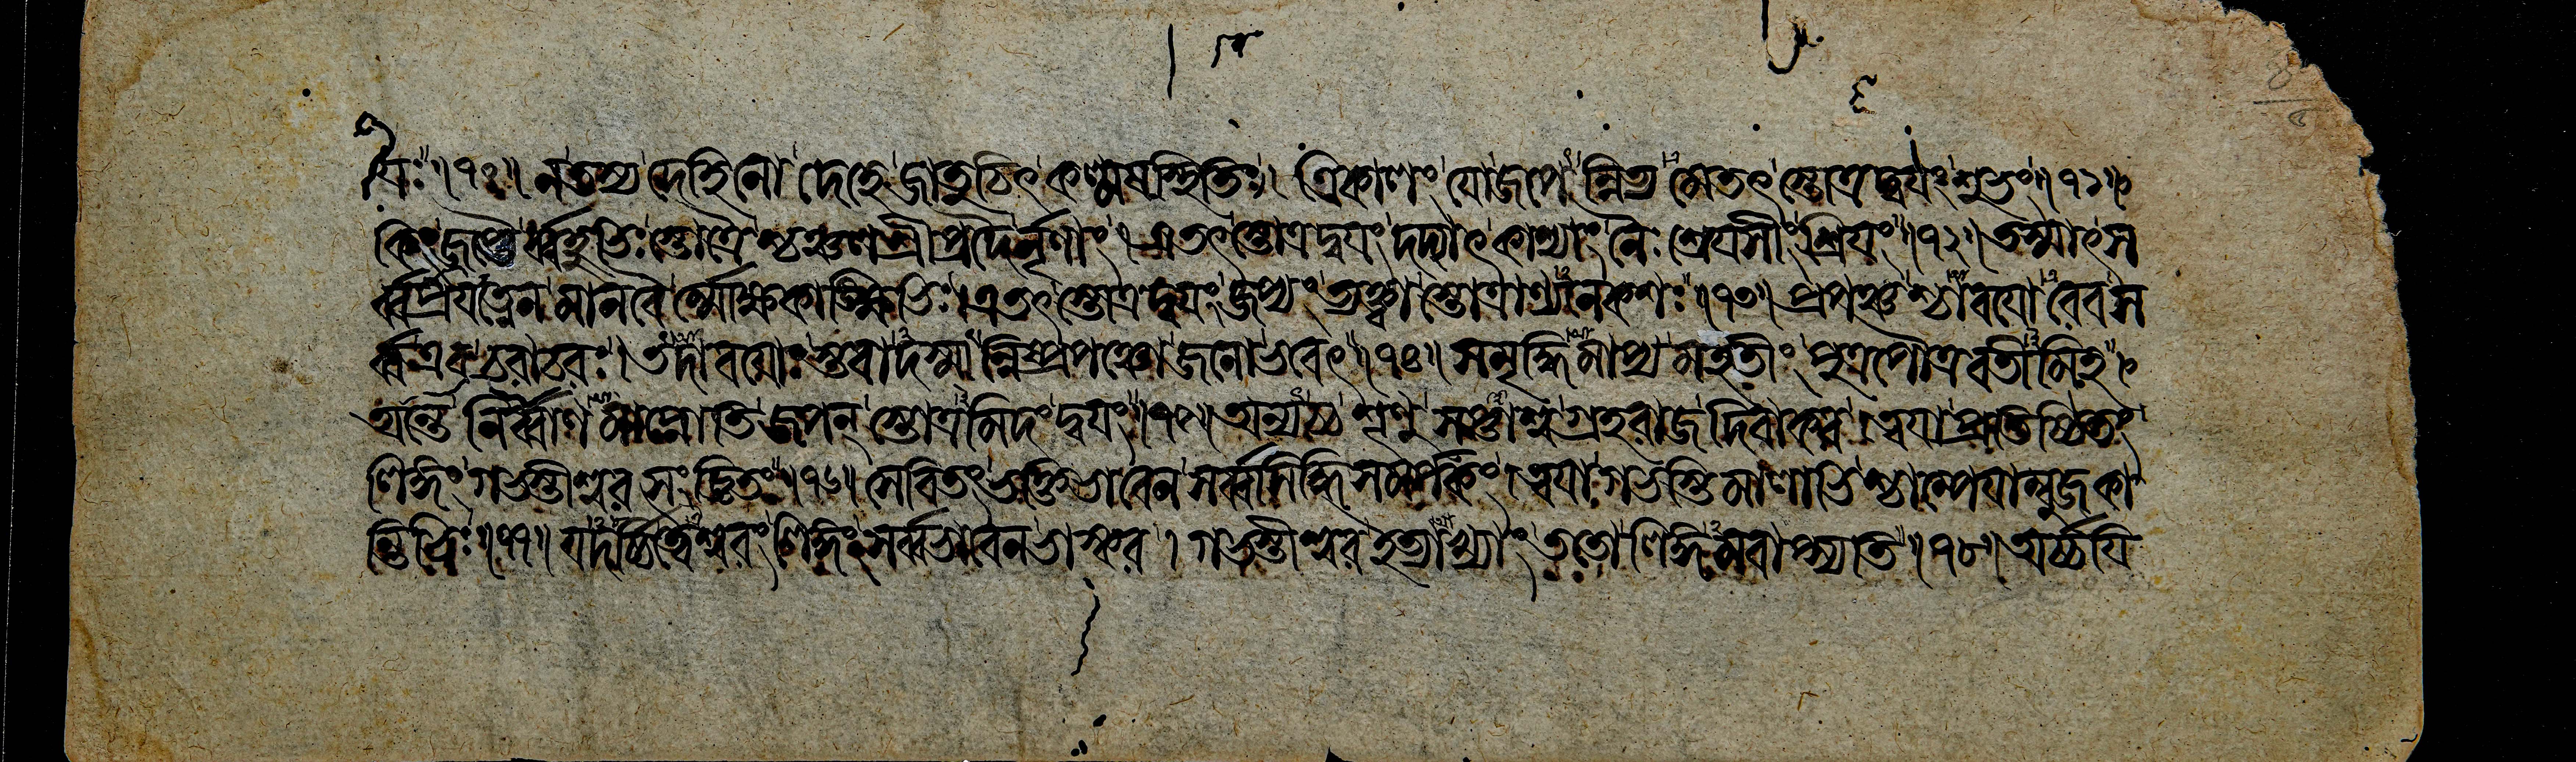 যৈঃ॥৭০॥ ন তস্য দেহিনো দেহে জাতুচিৎ কল্মষস্থিতিঃ। ত্রিকালং যো জপেন্নিত্যমেতৎ স্তোত্রদ্বয়ং শুভং॥৭১॥
কিং জপ্তৈর্ব্বহুভিঃ স্তোত্রৈশ্চঞ্চলশ্রীপ্রদৈর্নৃণাং। এতৎ স্তোত্রদ্বয়ং দদ্যাৎ কাশ্যাং নৈঃশ্রেয়সীং শ্রিয়ং॥৭২॥ তস্মাৎ স
র্ব্বপ্রযত্নেন মানবৈর্ম্মোক্ষকাঙ্ক্ষিভিঃ। এতৎ স্তোত্রদ্বয়ং জপ্যং ত্যক্ত্বা স্তোত্রাণ্যনেকশঃ॥৭৩॥ প্রপঞ্চশ্চাবয়োরেব স
র্ব্ব এব চরাচরঃ। তদাবয়োঃ স্তবাদস্মান্নিষ্প্রপঞ্চো জনো ভবেৎ॥৭৪॥ সমৃদ্ধিমাপ্য মহতীং পুত্রপৌত্রবতীমিহ
অন্তে নির্ব্বাণমাপ্নোতি জপন্ স্তোত্রমিদং দ্বয়ং॥৭৫॥ অন্যচ্চ শৃণু সপ্তাশ্ব গ্রহরাজ দিবাকর। ত্বয়া প্রতিষ্ঠিতং
লিঙ্গং গভস্তীশ্বরসংজ্ঞিতং॥৭৬॥ সেবিতং ভক্তিভাবেন সর্ব্বসিদ্ধিসমর্পকং। ত্বয়া গভস্তিমালাভিশ্চাম্পেয়াম্বুজকা
ন্তিভিঃ॥৭৭॥ যদর্চ্চিত্বৈশ্বরং লিঙ্গং সর্ব্বভাবেন ভাস্কর। গভস্তীশ্বর ইত্যাখ্যাং ততো লিঙ্গমবাপ্স্যতি॥৭৮॥ অর্চ্চয়ি